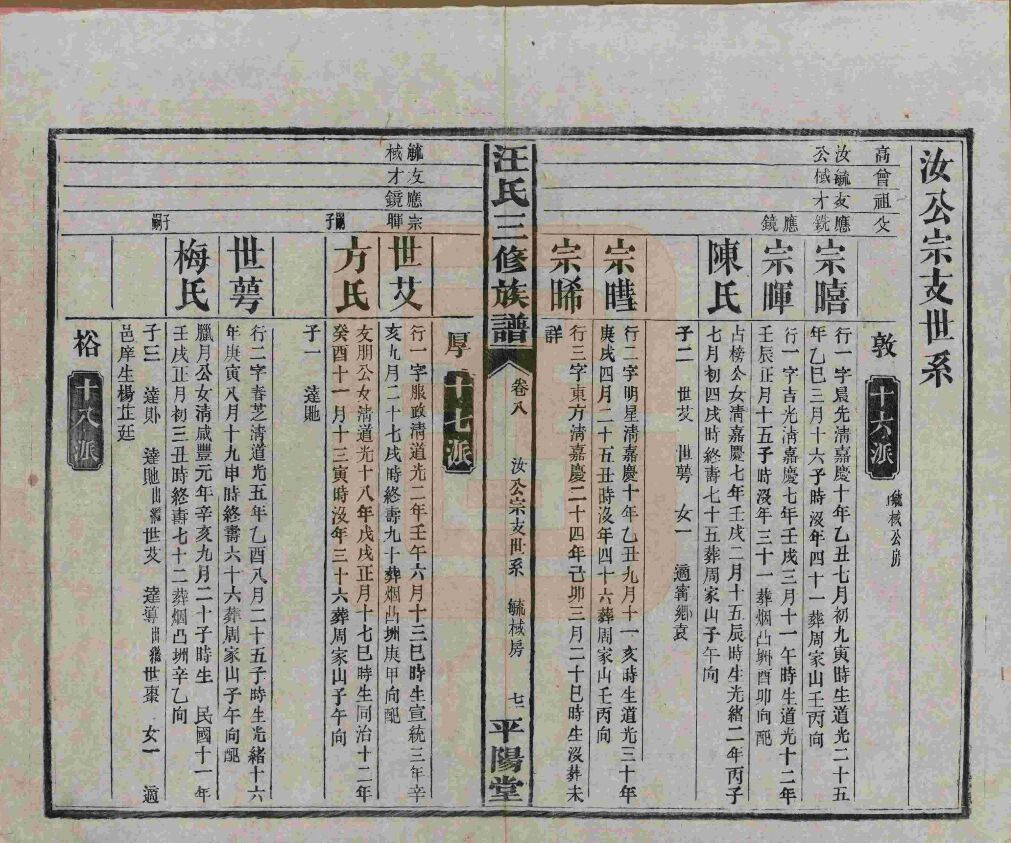 汝公宗支世系
高曾祖父
敦 十六派 毓棫公房
汝毓友應
公棫才銑
宗暿 行一字晨先清嘉慶十年乙丑七月初九寅時生道光二十五
年乙巳三月十六子時沒年四十一葬周家山壬丙向
應
鏡
宗暉 行一字吉光清嘉慶七年壬戌三月十一午時生道光十二年
壬辰正月十五子時沒年三十一葬烟凸坳酉卯向配
陳氏 占榜公女清嘉慶七年壬戌二月十五辰時生光緒二年丙子
七月初四戌時終壽七十五葬周家山子午向
子二 世芠 世萼 女一 適寗鄉袁
宗曄 行二字明星清嘉慶十年乙丑九月十一亥時生道光三十年
庚戌四月二十五丑時沒年四十六葬周家山壬丙向
宗晞 行三字東方清嘉慶二十四年己卯三月二十巳時生沒葬未
詳
汪氏三修族譜 卷八 汝公宗支世系 毓棫房 七一 平陽堂
厚 十七派
毓友應宗
棫才鏡暉
世芠 行一字服政清道光二年壬午六月十三巳時生宣統三年辛
亥九月二十七戌時終壽九十葬烟凸坳庚甲向配
嗣子
方氏 友朋公女清道光十八年戊戌正月十七巳時生同治十二年
癸酉十一月十三寅時沒年三十六葬周家山子午向
子一 達貤
世萼 行二字春芝清道光五年乙酉八月二十五子時生光緒十六
年庚寅八月十九申時終壽六十六葬周家山子午向配
梅氏 臘月公女清咸豐元年辛亥九月二十子時生 民國十一年
壬戌正月初三丑時終壽七十二葬烟凸坳辛乙向
子嗣
子三 達卧 達貤出繼世芠 達導出繼世棗 女一 適
邑庠生楊芷廷
裕 十八派